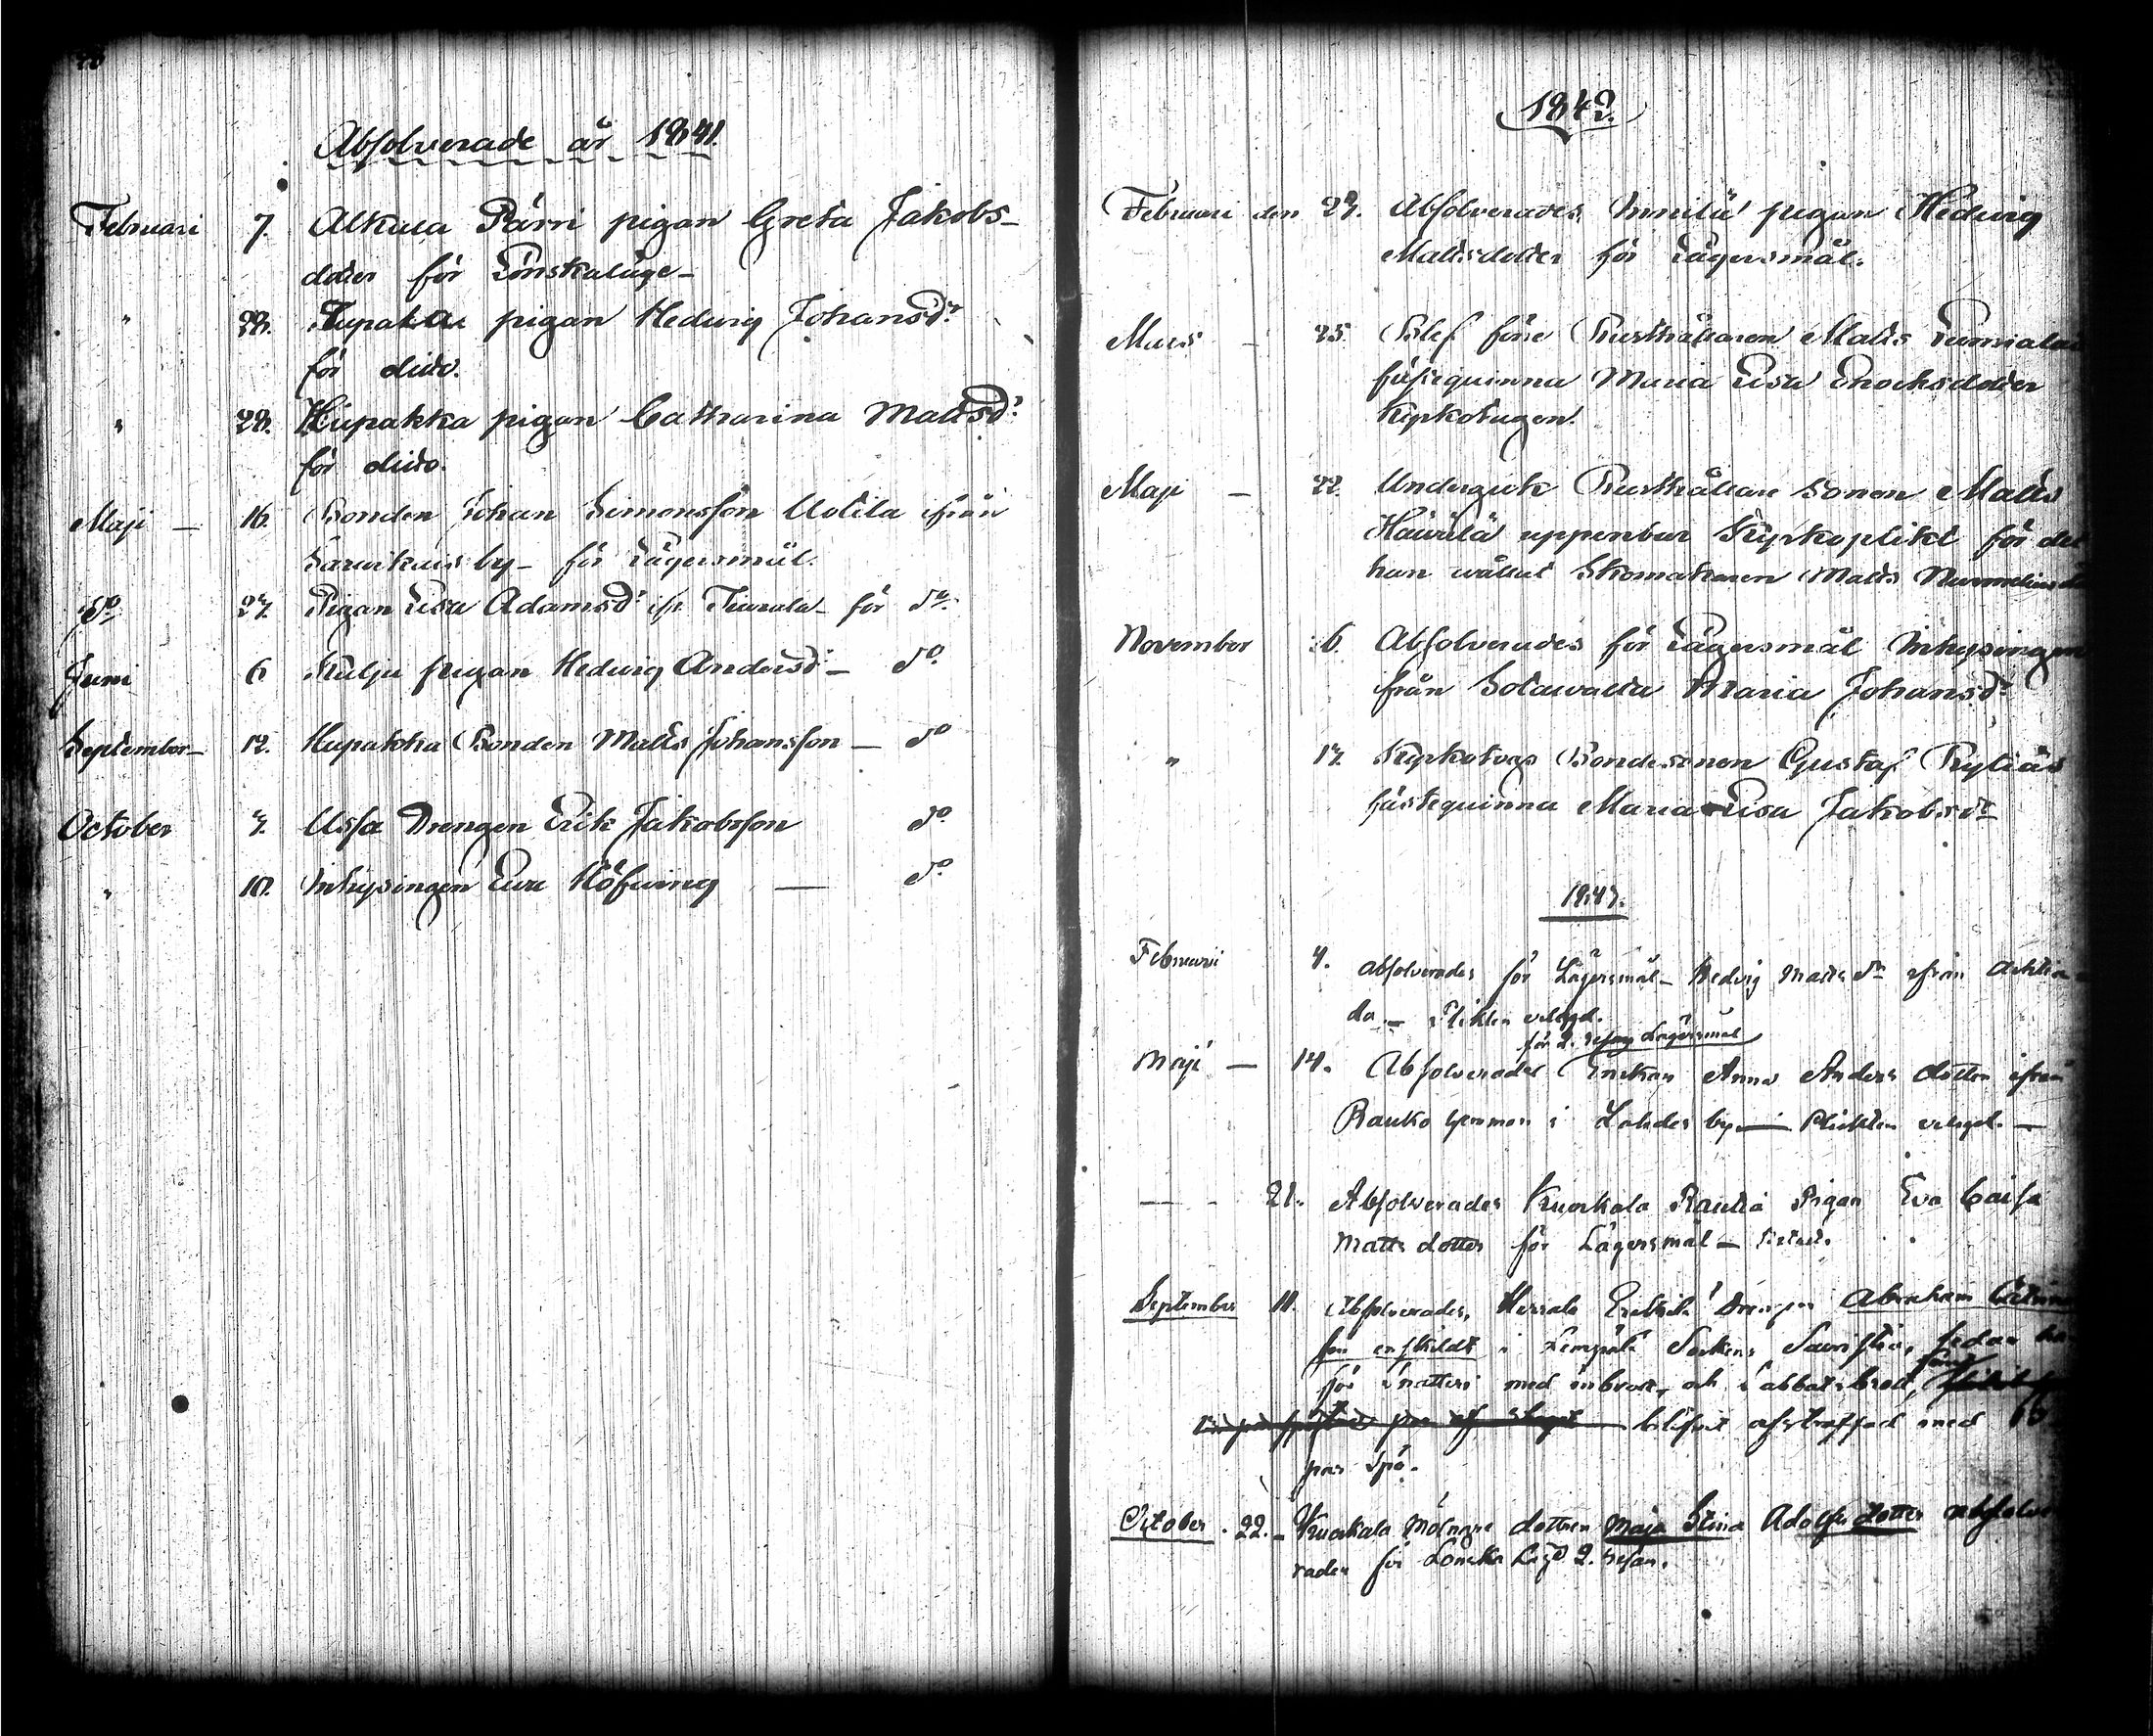 Absolverade år 1841.
Februari 7. Alkula Pärri pigan Greta Jakobs-
dotter för Lönskaläge-
" 28. Hupakka pigan Hedwig Johansdr
för dito.
" 28. Hupakka pigan Catharina Mattsdr
för dito.
Maji — 16. Bonden Johan Simonsson Uotila ifrån
by - för Lägersmål.
do 27. Pigan Lisa Adamsdr ifr. för do
Juni 6 Kulju pigan Hedwig Andersdr - do
September - 12. Hupakka Bonden Matts Johansson — do
October 7. Ussa Drengen Erik Jakobsson do
" 10. Inhysingen Eva Höfving — do
1842.
Februari den 27. Absolverades, pigan Hedwig
Mattsdotter för Lägersmål.
Mars — 25. Blef före Rusthållaren Matts
fästequinna Maria Lisa Enochsdotter
Kyrkotagen.
Maji — 22. Undergick Rusthållare Sonen Matts
uppenbar Kyrkoplikt för det
han wållat Skomakaren Matts
November 6. Absolverades för Lägersmål Inhysingen
från Sotawalta Maria Johansdr
" 17. Kyrkotogs Bondesonen Gustaf
fästequinna Maria Lisa Jakobsdr
1843.
Februari 4. absolverades för Lägersmål - Hedvig Matts dr ifrån
da. — Plikten erlagd.
för 2. resan Lägersmål
Maji — 14. Absolverades Enkan Anna Anders dotter ifrån
Rauko hemman i Lahdes by — Plikten erlagd. —
— - 21. Absolverades Kuokala Rautia Pigan Eva Caisa
Matts dotter för Lägersmål —
September 11. Absolverades, Herrala Drengen Abraham
för enskildt i Lempälä Sockens Sacristia, sedan han
för snatteri med inbrott, och sabbatsbrott,
blifvit afstraffad med 16
par Spö.
October . 22. - Kuokala Mölnare dottren Maja Stina Adolfs dotter absolve
rades för Lönska Läg 2. resan.